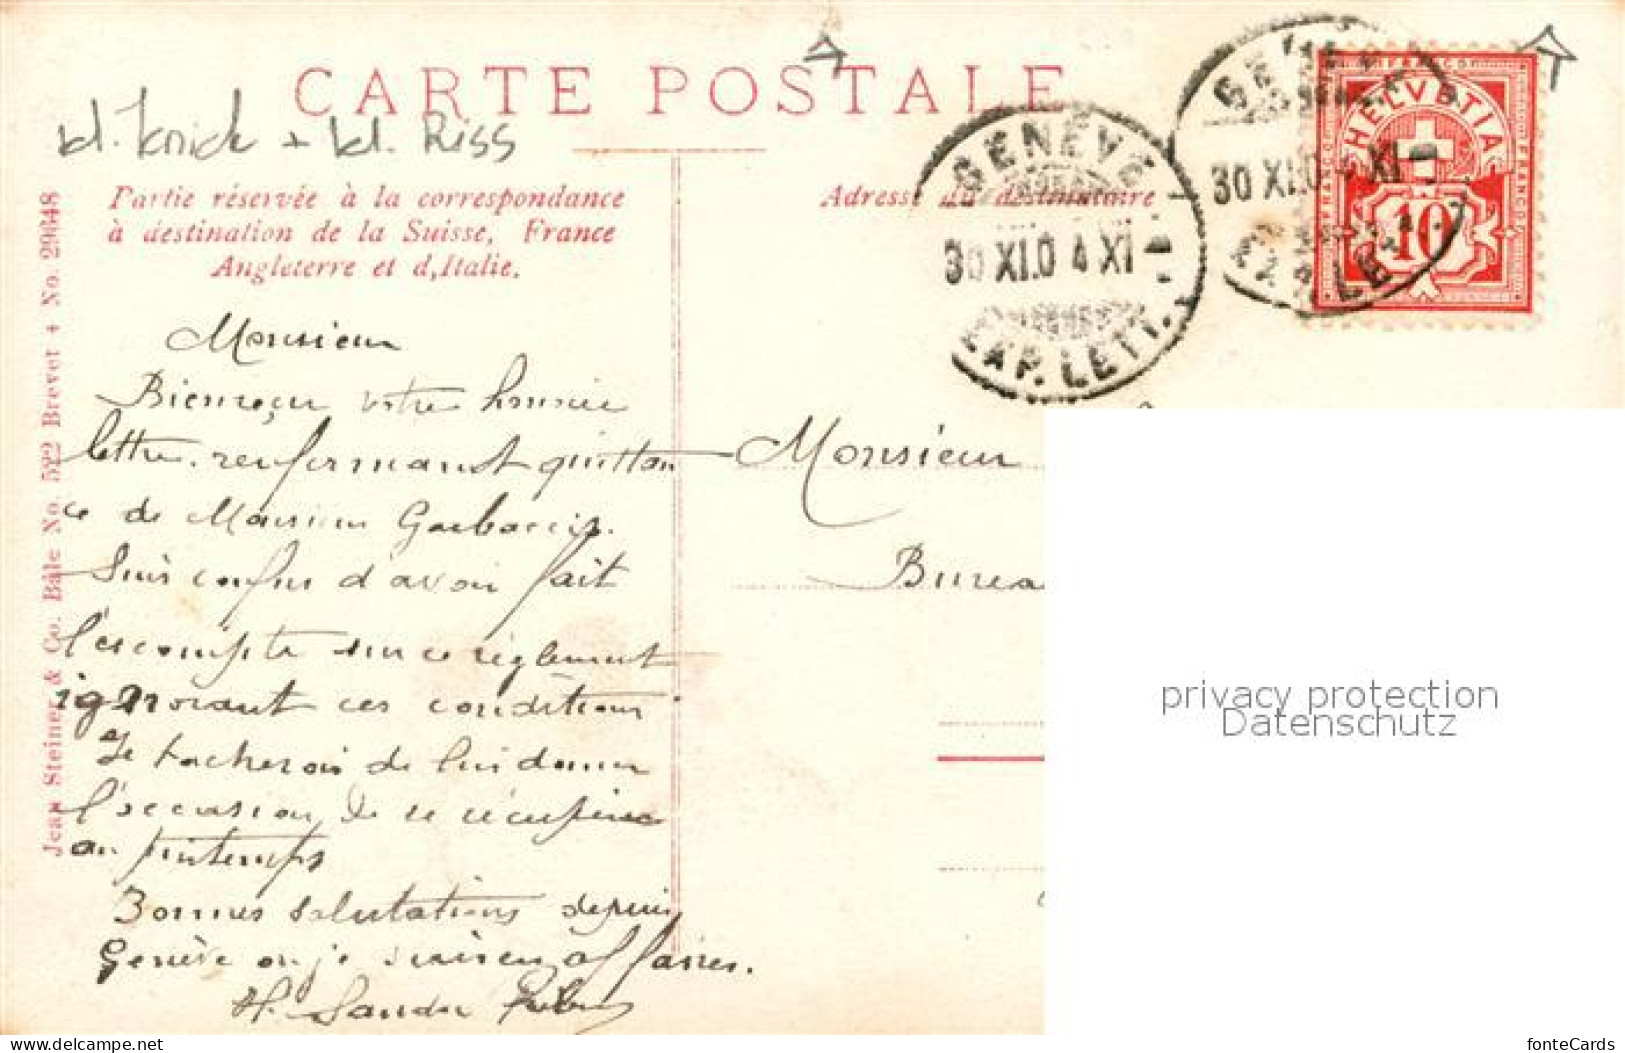 CARTE POSTALE
kl. Knick + kl. Riss
Partie réservée à la correspondance
à destination de la Suisse, France
Angleterre et d,Italie.
Adresse du destinataire
GENÈVE
30 XI.04 XI
EXP. LETT.
GENÈVE
30 XI.04 XI
EXP. LE
FRANCO
HELVETIA
FRANCO
FRANCO
10
Jean Steiner & Co. Bâle No. 522 Brevet + No. 29648
Monsieur
Bien reçu votre honorée
lettre renfermant quittan
ce de Monsieur
Suis confus d'avoir fait
l'escompte sur ce règlement
ignorant ces conditions
Je tacherais de lui donner
l'occasion de se récupérer
au printemps
Bonnes salutations depuis
Genève ou je suis en affaires.
H. Sandoz
Monsieur
Burea
privacy protection
Datenschutz
www.ansichtskartenversand.com
fonteCards